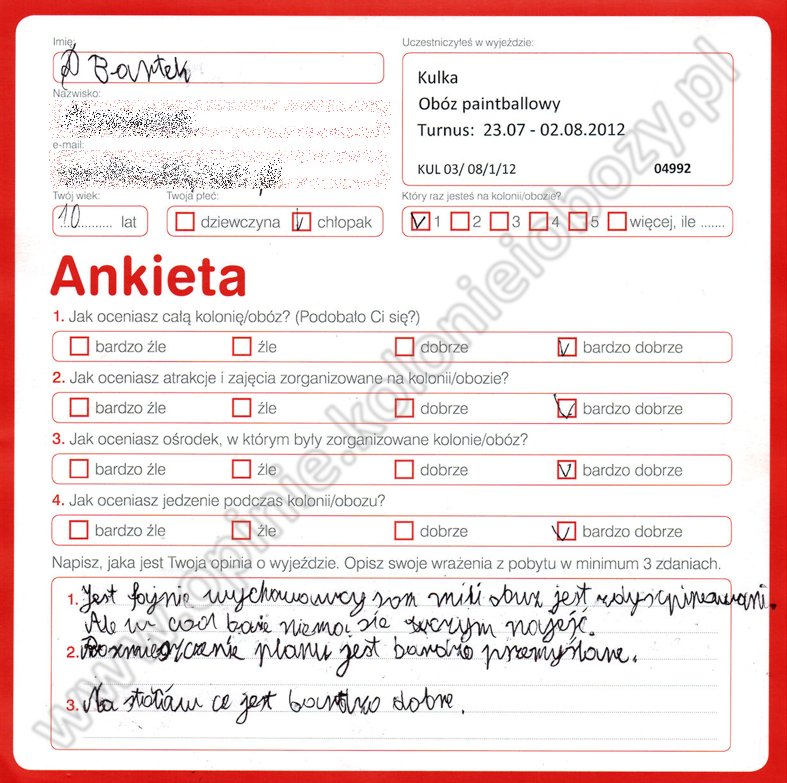 Imię:
Bartek
Uczestniczyłeś w wyjeździe:
Kulka
Obóz paintballowy
Turnus: 23.07 - 02.08.2012
KUL 03/ 08/1/12 04992
Nazwisko:
e-mail:
Twój wiek: Twoja płeć: Który raz jesteś na kolonii/obozie?
10 lat dziewczyna chłopak 1 2 3 4 5 więcej, ile .......
Ankieta
1. Jak oceniasz całą kolonię/obóz? (Podobało Ci się?)
bardzo źle źle dobrze bardzo dobrze
2. Jak oceniasz atrakcje i zajęcia zorganizowane na kolonii/obozie?
bardzo źle źle dobrze bardzo dobrze
3. Jak oceniasz ośrodek, w którym były zorganizowane kolonie/obóz?
bardzo źle źle dobrze bardzo dobrze
4. Jak oceniasz jedzenie podczas kolonii/obozu?
bardzo źle źle dobrze bardzo dobrze
Napisz, jaka jest Twoja opinia o wyjeździe. Opisz swoje wrażenia z pobytu w minimum 3 zdaniach.
1. Jest fajnie wychowawcy som mili obuz jest
Ale w niema się czym najeść.
2. planu jest bardzo przemyślane.
3. Na ce jest bardzo dobre.
www.opinie.kolonieiobozy.pl